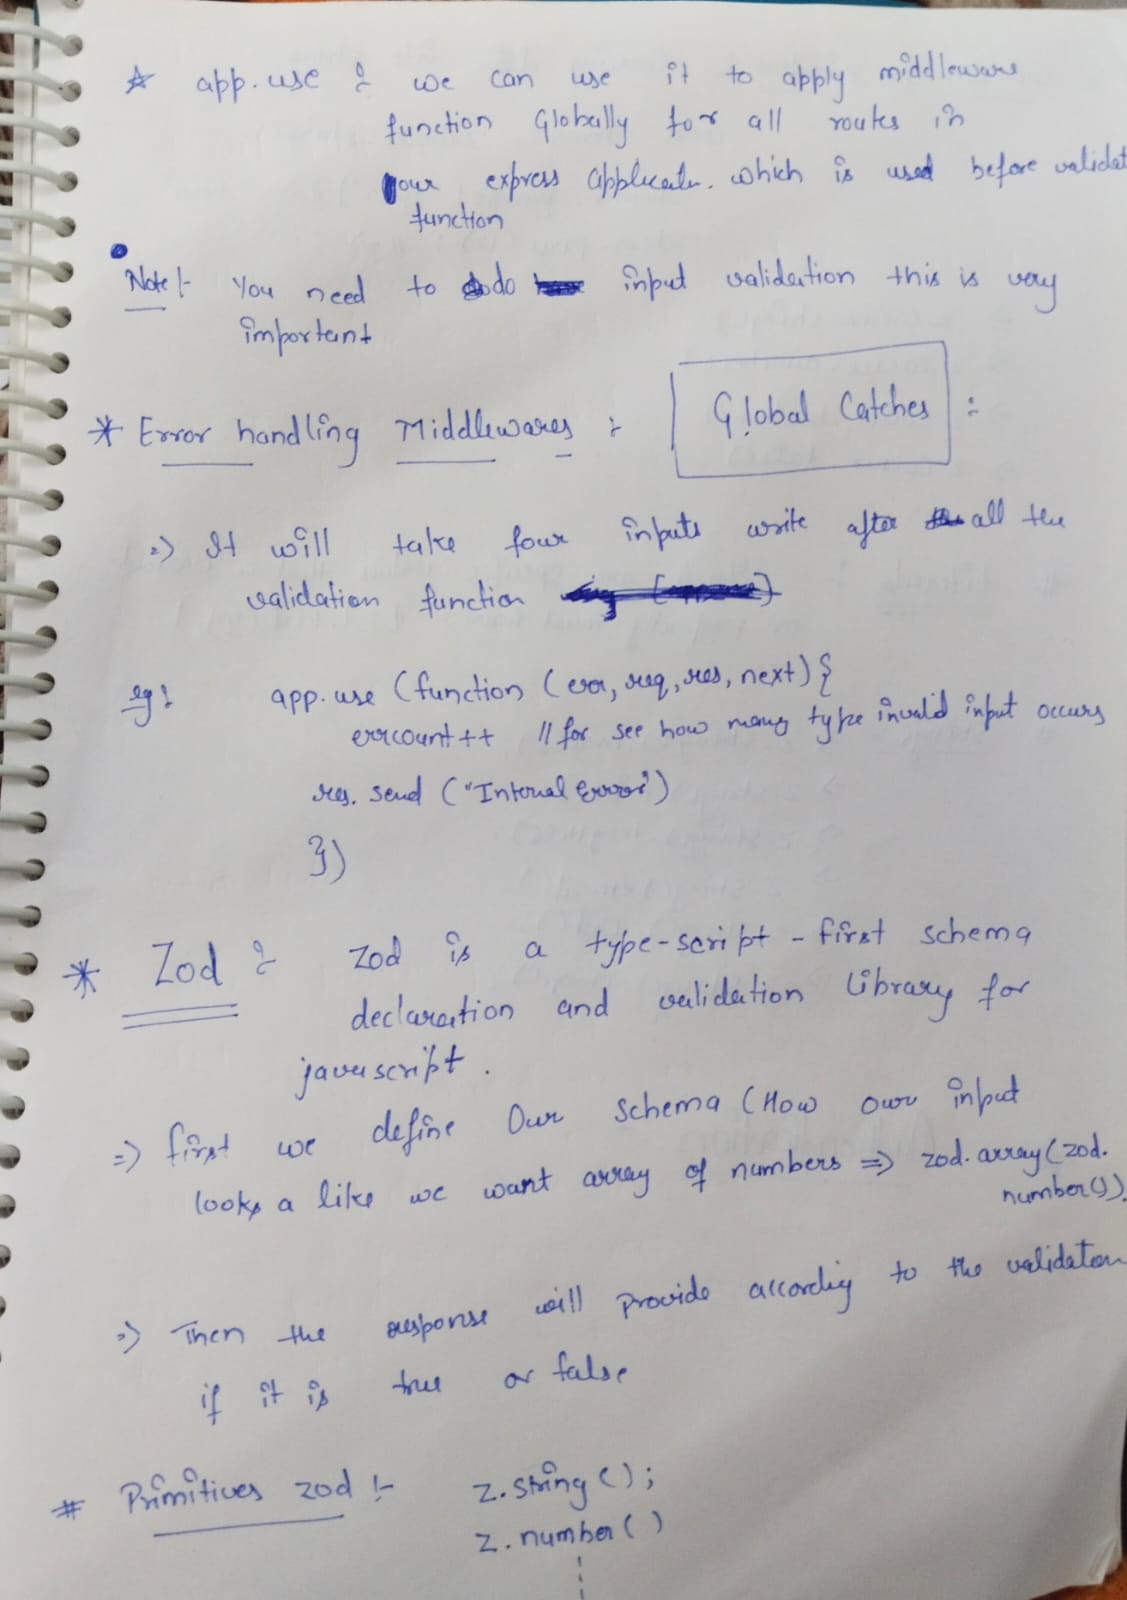 ☆ app.use :- we can use it to apply middleware
function Globally for all routes in
your express applicatn. which is used before validat
function
Note :- You need to do input validation this is very
important
* Error handling Middlewares :- Global Catches :
=> It will take four inputs write after all the
validation function
eg : app.use (function (err, req, res, next) {
errcount++ // for see how many type invalid input occurs
res. send ("Internal Error")
})
* Zod :- Zod is a type-script - first schema
declaration and validation library for
javascript .
=> first we define Our schema (How our input
looks a like we want array of numbers => zod.array(zod.
number()).
=> Then the response will provide accordig to the validation
if it is true or false
# Primitives zod :- z.string();
z.number()